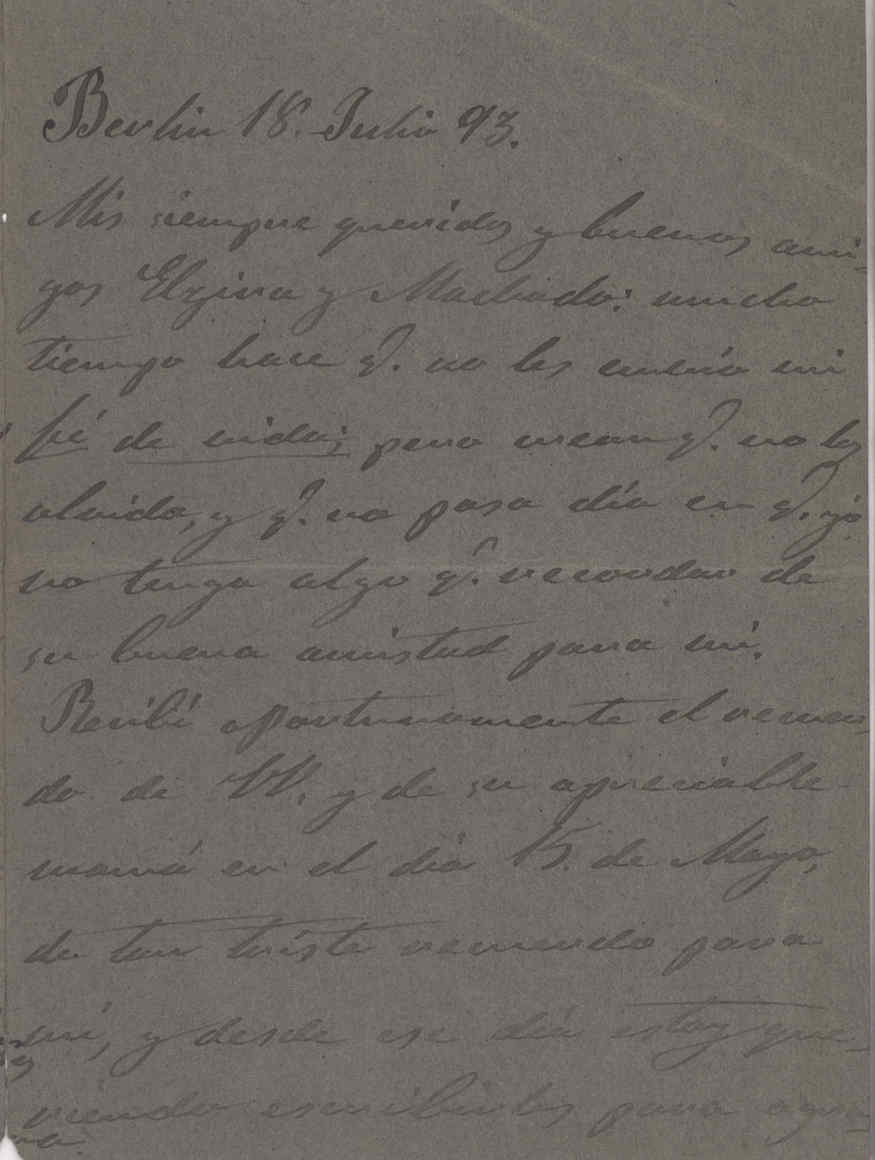 Berlin 18. Julio 93.
Mis siempre queridos y buenos ami-
gos Elzira y Machado: mucho
tiempo hace q. no les envío mi
fé de vida; pero crean q. no los
olvido, y q. no pasa día en q. yo
no tenga algo q. recordar de
su buena amistad para mi.
Recibí oportunamente el recuer-
do de VV. y de su apreciable
mamá en el día 15. de Mayo,
de tan triste recuerdo para
mí, y desde ese día estoy que-
riendo escribirles para agra-